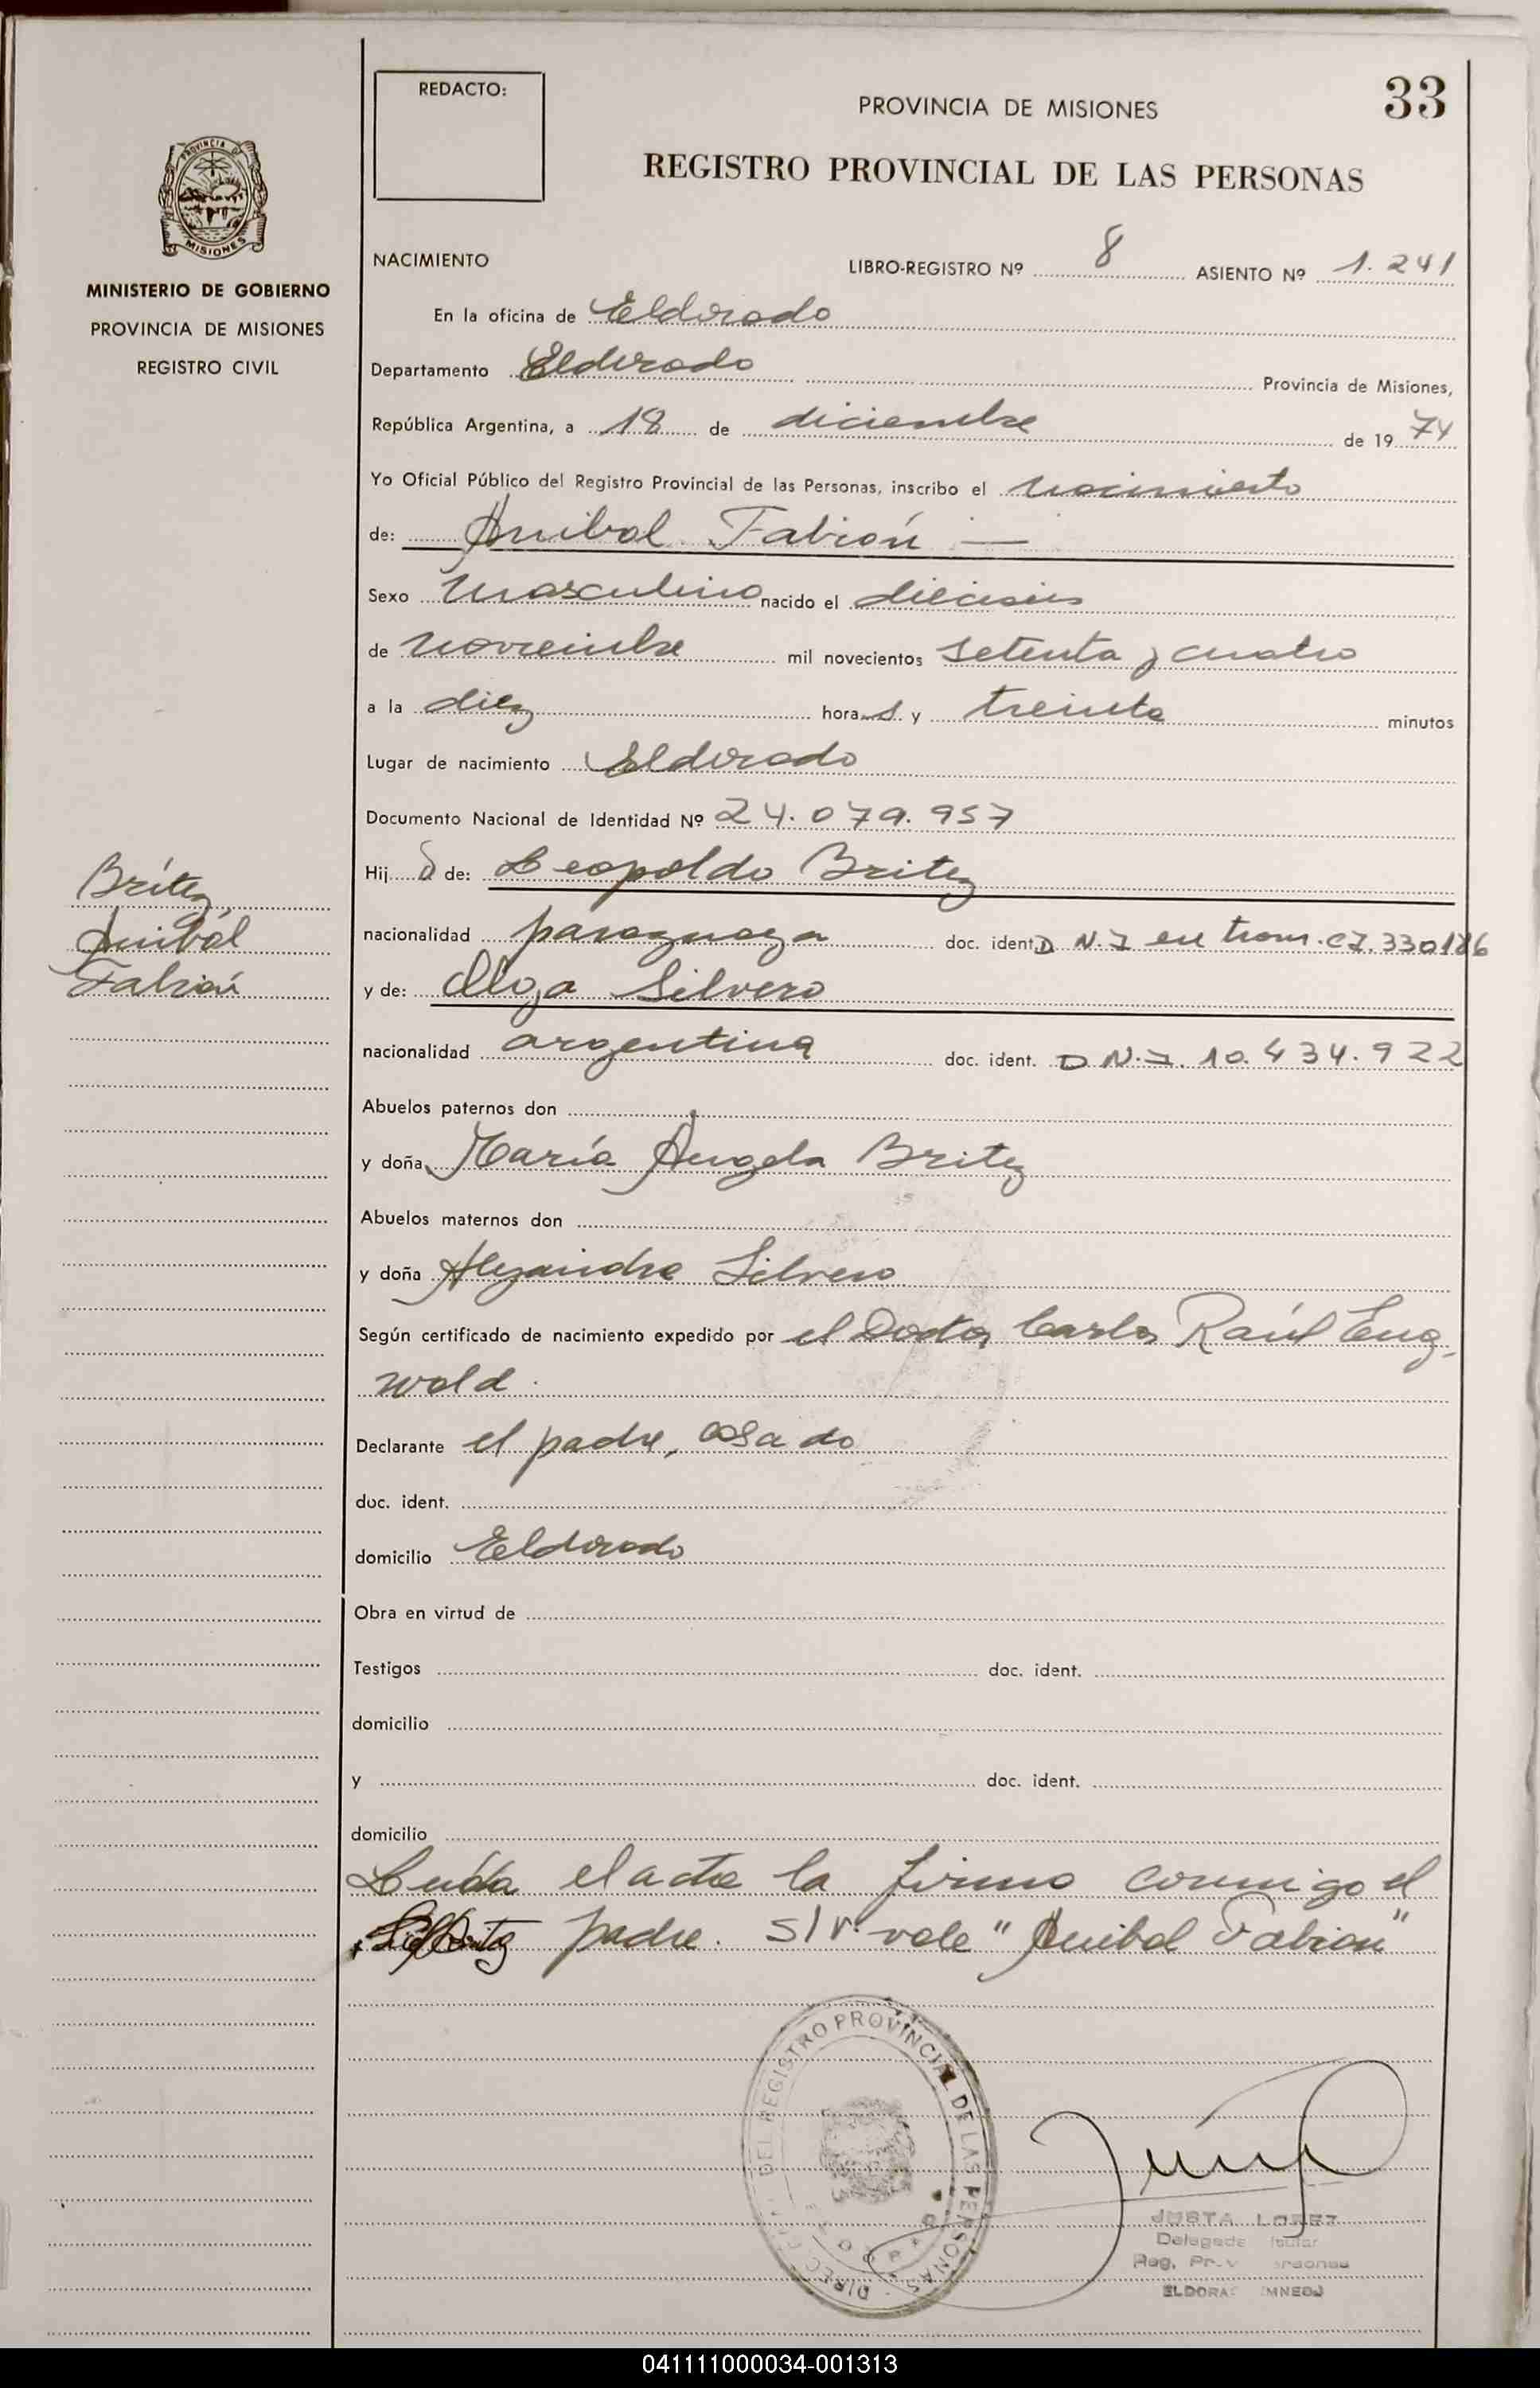 33
REDACTO:
PROVINCIA DE MISIONES
REGISTRO PROVINCIAL DE LAS PERSONAS
PROVINCIA DE
MISIONES
MINISTERIO DE GOBIERNO
PROVINCIA DE MISIONES
REGISTRO CIVIL
NACIMIENTO LIBRO-REGISTRO Nº 8 ASIENTO Nº 1.241
En la oficina de Eldorado
Departamento Eldorado Provincia de Misiones,
República Argentina, a 18 de diciembre de 1974
Yo Oficial Público del Registro Provincial de las Personas, inscribo el nacimiento
de: Anibal Fabián —
Sexo masculino nacido el dieciseis
de noviembre mil novecientos setenta y cuatro
a la diez horas y treinta minutos
Lugar de nacimiento Eldorado
Documento Nacional de Identidad Nº 24.079.957
Hijo de: Leopoldo Britez
Brítez
Anibal
Fabián
nacionalidad paraguaya doc. ident. D N.I en tram. CI. 330186
y de: Olga Silvero
nacionalidad argentina doc. ident. D N.I. 10.434.922
Abuelos paternos don
y doña María Angela Britez
Abuelos maternos don
y doña Alejandra Silvero
Según certificado de nacimiento expedido por el Doctor Carlos Raúl Eng-
wald.
Declarante el padre, casado
doc. ident.
domicilio Eldorado
Obra en virtud de
Testigos doc. ident.
domicilio
y doc. ident.
domicilio
Leída el acta la firma conmigo el
padre. S/r. vale "Anibal Fabian"
DIRECCION DEL REGISTRO PROVINCIAL DE LAS PERSONAS
JUSTA LOPEZ
Delegada Titular
Reg. Prov. Personas
041111000034-001313